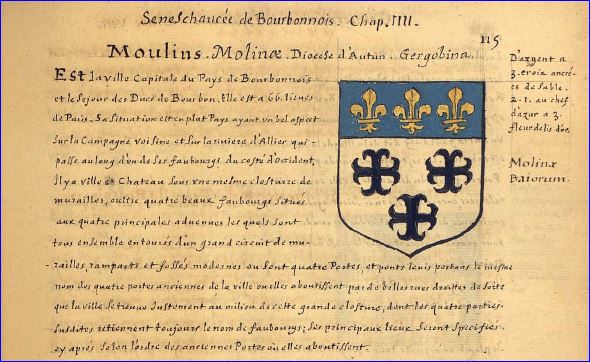 Seneschaucée de Bourbonnois. Chap. IIII.
115
Moulins. Molinæ. Diocese d'Autun. Gergobina.
Est la ville Capitale du Pays de Bourbonnois
et le sejour des Ducs de Bourbon. Elle est a 66. lieues
de Paris. Sa situation est en plat Pays ayant un bel aspect
sur la Campagne voisine et sur la riviere d'Allier qui
passe au long d'un de ses faubourgs du costé d'Occident,
Il y a ville et Chateau sous une mesme closture de
murailles, oultre quatre beaux faubourgs situés
aux quatre principales advenues les quels sont
tous ensemble entourés d'un grand circuit de mu-
railles, ramparts et fossés modernes ou sont quatre Portes, et ponts levis portans le mesme
nom des quatre portes anciennes de la ville ou elles aboutissent par de belles rues droites de sorte
que la ville se treuve justement au milieu de cette grande closture, dont les quatre parties
susdites retiennent toujours le nom de faubourgs; ses principaux lieux seront specifiés
cy aprés selon l'ordre des anciennes Portes où elles aboutissent.
D'argent a
3. croix ancré-
es de sable.
2. 1. au chef
d'azur a 3.
fleurdelis d'or.
Molinæ
Boiorum.